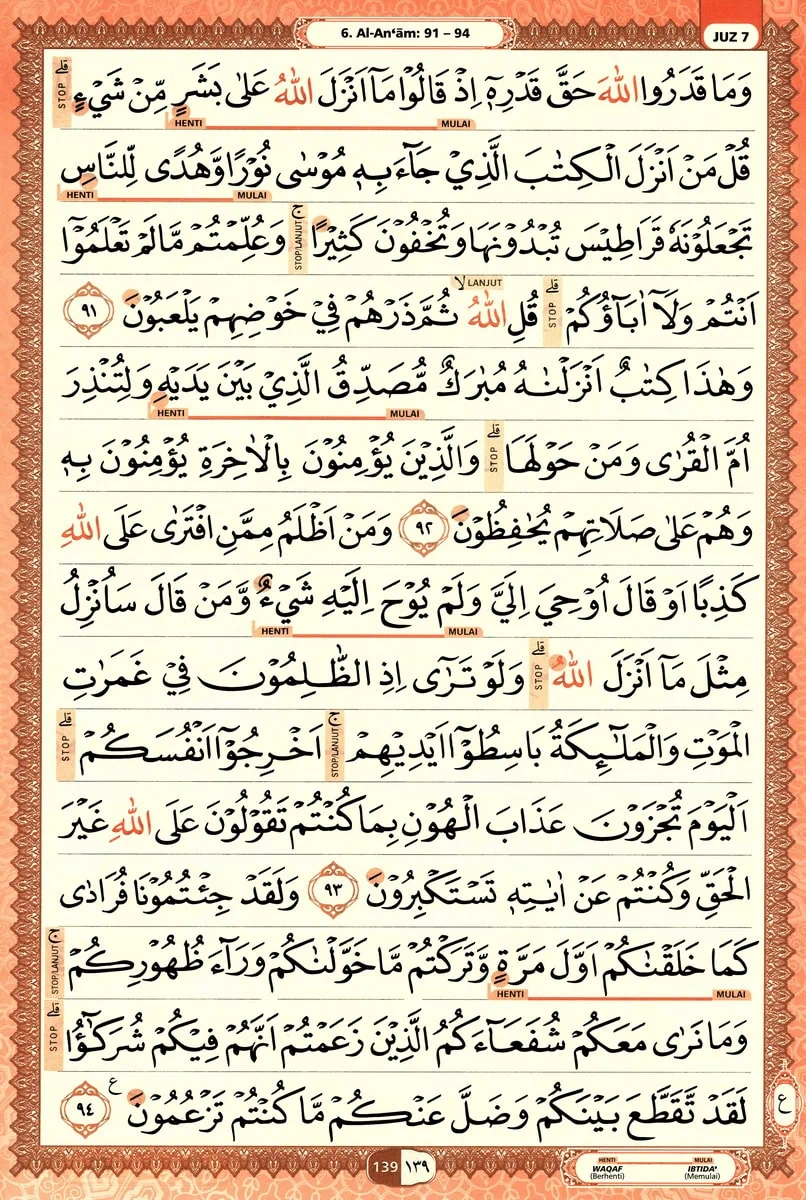 6. Al-An‘ām: 91 – 94
JUZ 7
وَمَا قَدَرُوا اللّٰهَ حَقَّ قَدْرِهٖٓ اِذْ قَالُوْا مَآ اَنْزَلَ اللّٰهُ عَلٰى بَشَرٍ مِّنْ شَيْءٍۗ
STOP
HENTI MULAI
قُلْ مَنْ اَنْزَلَ الْكِتٰبَ الَّذِيْ جَاۤءَ بِهٖ مُوْسٰى نُوْرًا وَّهُدًى لِّلنَّاسِ
HENTI MULAI
تَجْعَلُوْنَهٗ قَرَاطِيْسَ تُبْدُوْنَهَا وَتُخْفُوْنَ كَثِيْرًاۚ وَعُلِّمْتُمْ مَّا لَمْ تَعْلَمُوْٓا
STOP/LANJUT
LANJUT
اَنْتُمْ وَلَآ اٰبَاۤؤُكُمْۗ قُلِ اللّٰهُۙ ثُمَّ ذَرْهُمْ فِيْ خَوْضِهِمْ يَلْعَبُوْنَ ٩١
STOP
وَهٰذَا كِتٰبٌ اَنْزَلْنٰهُ مُبٰرَكٌ مُّصَدِّقُ الَّذِيْ بَيْنَ يَدَيْهِ وَلِتُنْذِرَ
HENTI MULAI
اُمَّ الْقُرٰى وَمَنْ حَوْلَهَاۗ وَالَّذِيْنَ يُؤْمِنُوْنَ بِالْاٰخِرَةِ يُؤْمِنُوْنَ بِهٖ
STOP
وَهُمْ عَلٰى صَلَاتِهِمْ يُحٰفِظُوْنَ ٩٢ وَمَنْ اَظْلَمُ مِمَّنِ افْتَرٰى عَلَى اللّٰهِ
كَذِبًا اَوْ قَالَ اُوْحِيَ اِلَيَّ وَلَمْ يُوْحَ اِلَيْهِ شَيْءٌ وَّمَنْ قَالَ سَاُنْزِلُ
HENTI MULAI
مِثْلَ مَآ اَنْزَلَ اللّٰهُۗ وَلَوْ تَرٰٓى اِذِ الظّٰلِمُوْنَ فِيْ غَمَرٰتِ
STOP
الْمَوْتِ وَالْمَلٰۤىِٕكَةُ بَاسِطُوْٓا اَيْدِيْهِمْۚ اَخْرِجُوْٓا اَنْفُسَكُمْۗ
STOP/LANJUT
STOP
اَلْيَوْمَ تُجْزَوْنَ عَذَابَ الْهُوْنِ بِمَا كُنْتُمْ تَقُوْلُوْنَ عَلَى اللّٰهِ غَيْرَ
الْحَقِّ وَكُنْتُمْ عَنْ اٰيٰتِهٖ تَسْتَكْبِرُوْنَ ٩٣ وَلَقَدْ جِئْتُمُوْنَا فُرَادٰى
كَمَا خَلَقْنٰكُمْ اَوَّلَ مَرَّةٍ وَّتَرَكْتُمْ مَّا خَوَّلْنٰكُمْ وَرَاۤءَ ظُهُوْرِكُمْۚ
STOP/LANJUT
HENTI MULAI
وَمَا نَرٰى مَعَكُمْ شُفَعَاۤءَكُمُ الَّذِيْنَ زَعَمْتُمْ اَنَّهُمْ فِيْكُمْ شُرَكٰۤؤُاۗ
STOP
لَقَدْ تَّقَطَّعَ بَيْنَكُمْ وَضَلَّ عَنْكُمْ مَّا كُنْتُمْ تَزْعُمُوْنَ ࣖ ٩٤
ع
139 ١٣٩
HENTI MULAI
WAQAF IBTIDA’
(Berhenti) (Memulai)